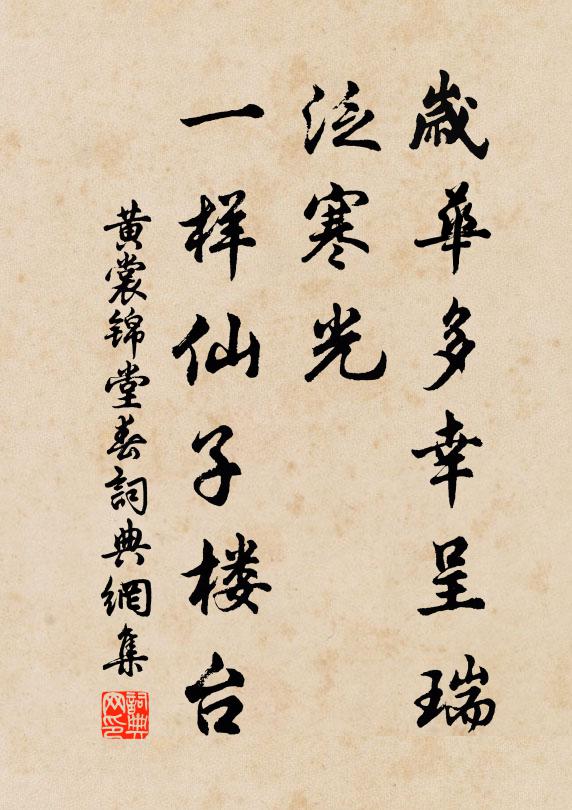 歲華多幸呈瑞
泛寒光
一样仙子楼台
黄裳锦堂春詞典網集
詞典网印